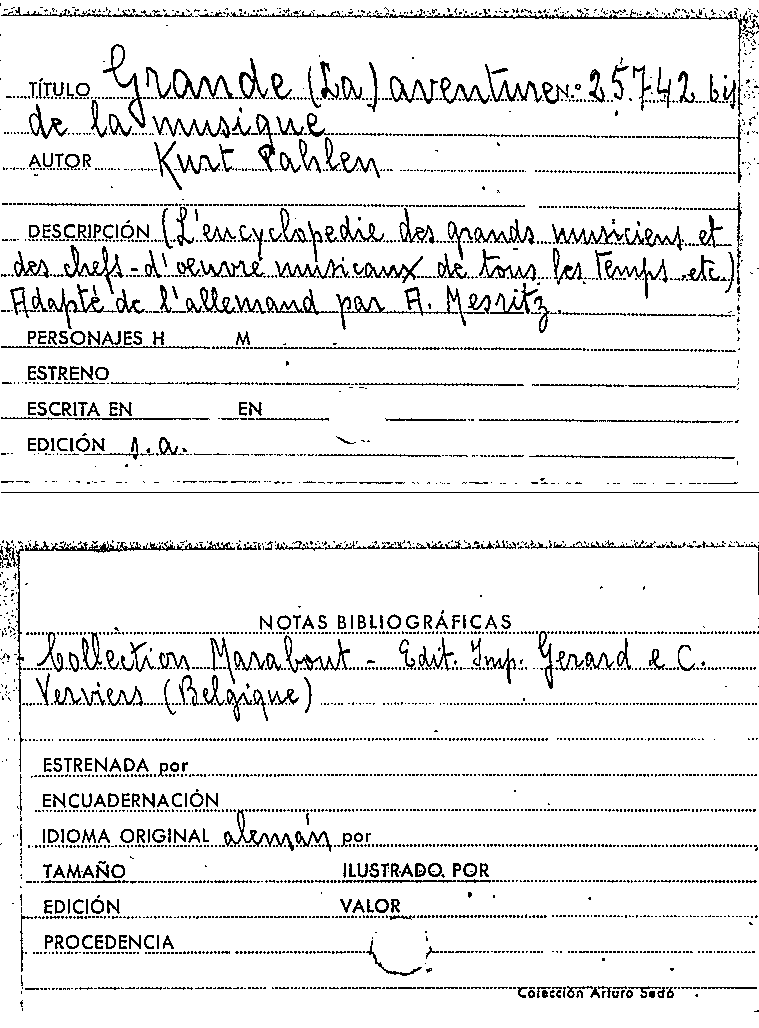 TÍTULO Grande (La) aventure N.º 25.742 bis
de la musique
AUTOR Kurt Pahlen
DESCRIPCIÓN (L'encyclopedie des grands musiciens et
des chefs-d'oeuvre musicaux de tous les temps etc.)
Adapté de l'allemand par A. Mesritz.
PERSONAJES H M
ESTRENO
ESCRITA EN EN
EDICIÓN s.a.
NOTAS BIBLIOGRÁFICAS
Collection Marabout - Edit. Imp. Gerard e C.
Verviers (Belgique)
ESTRENADA por
ENCUADERNACIÓN
IDIOMA ORIGINAL alemán por
TAMAÑO ILUSTRADO POR
EDICIÓN VALOR
PROCEDENCIA
Colección Arturo Sedó